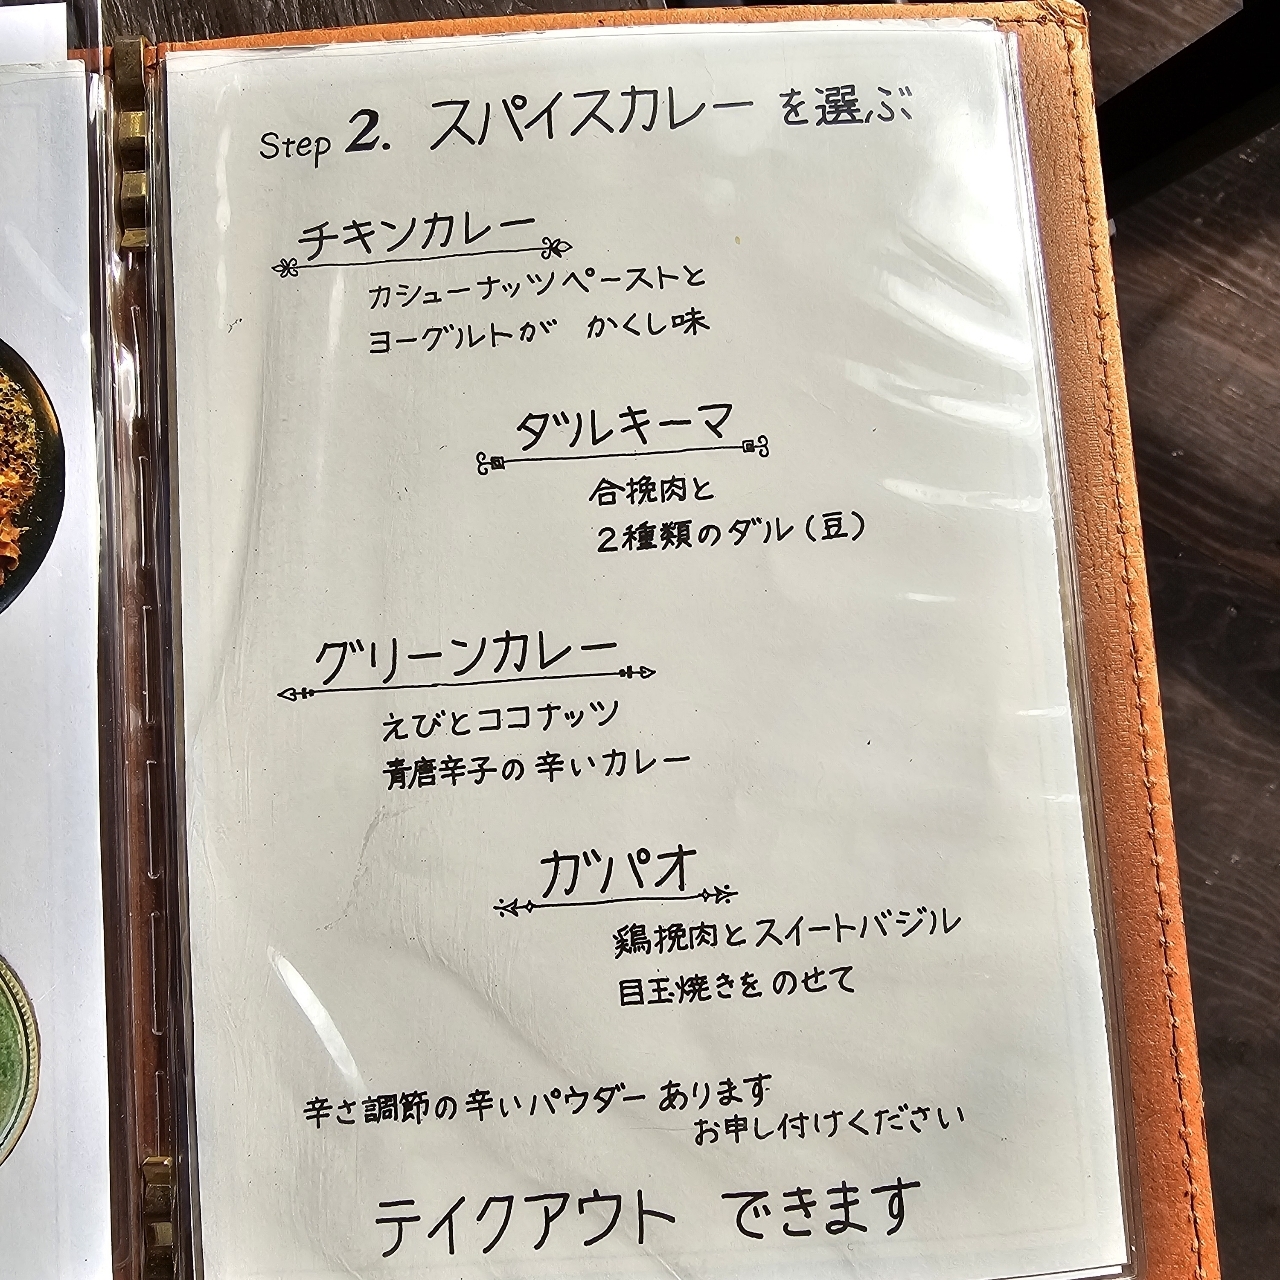 Step 2. スパイスカレー を選ぶ
チキンカレー
カシューナッツペーストと
ヨーグルトが かくし味
ダツルキーマ
合挽肉と
2種類のダル(豆)
グリーンカレー
えびとココナッツ
青唐辛子の辛いカレー
ガパオ
鶏挽肉とスイートバジル
目玉焼きを のせて
辛さ調節の辛いパウダー あります
お申し付けください
テイクアウト できます